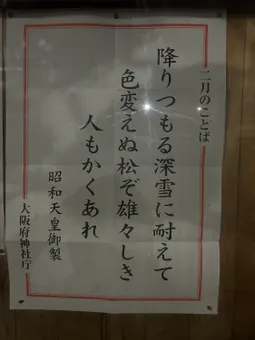 二月のことば
降りつもる深雪に耐えて
色変えぬ松ぞ雄々しき
人もかくあれ
昭和天皇御製
大阪府神社庁